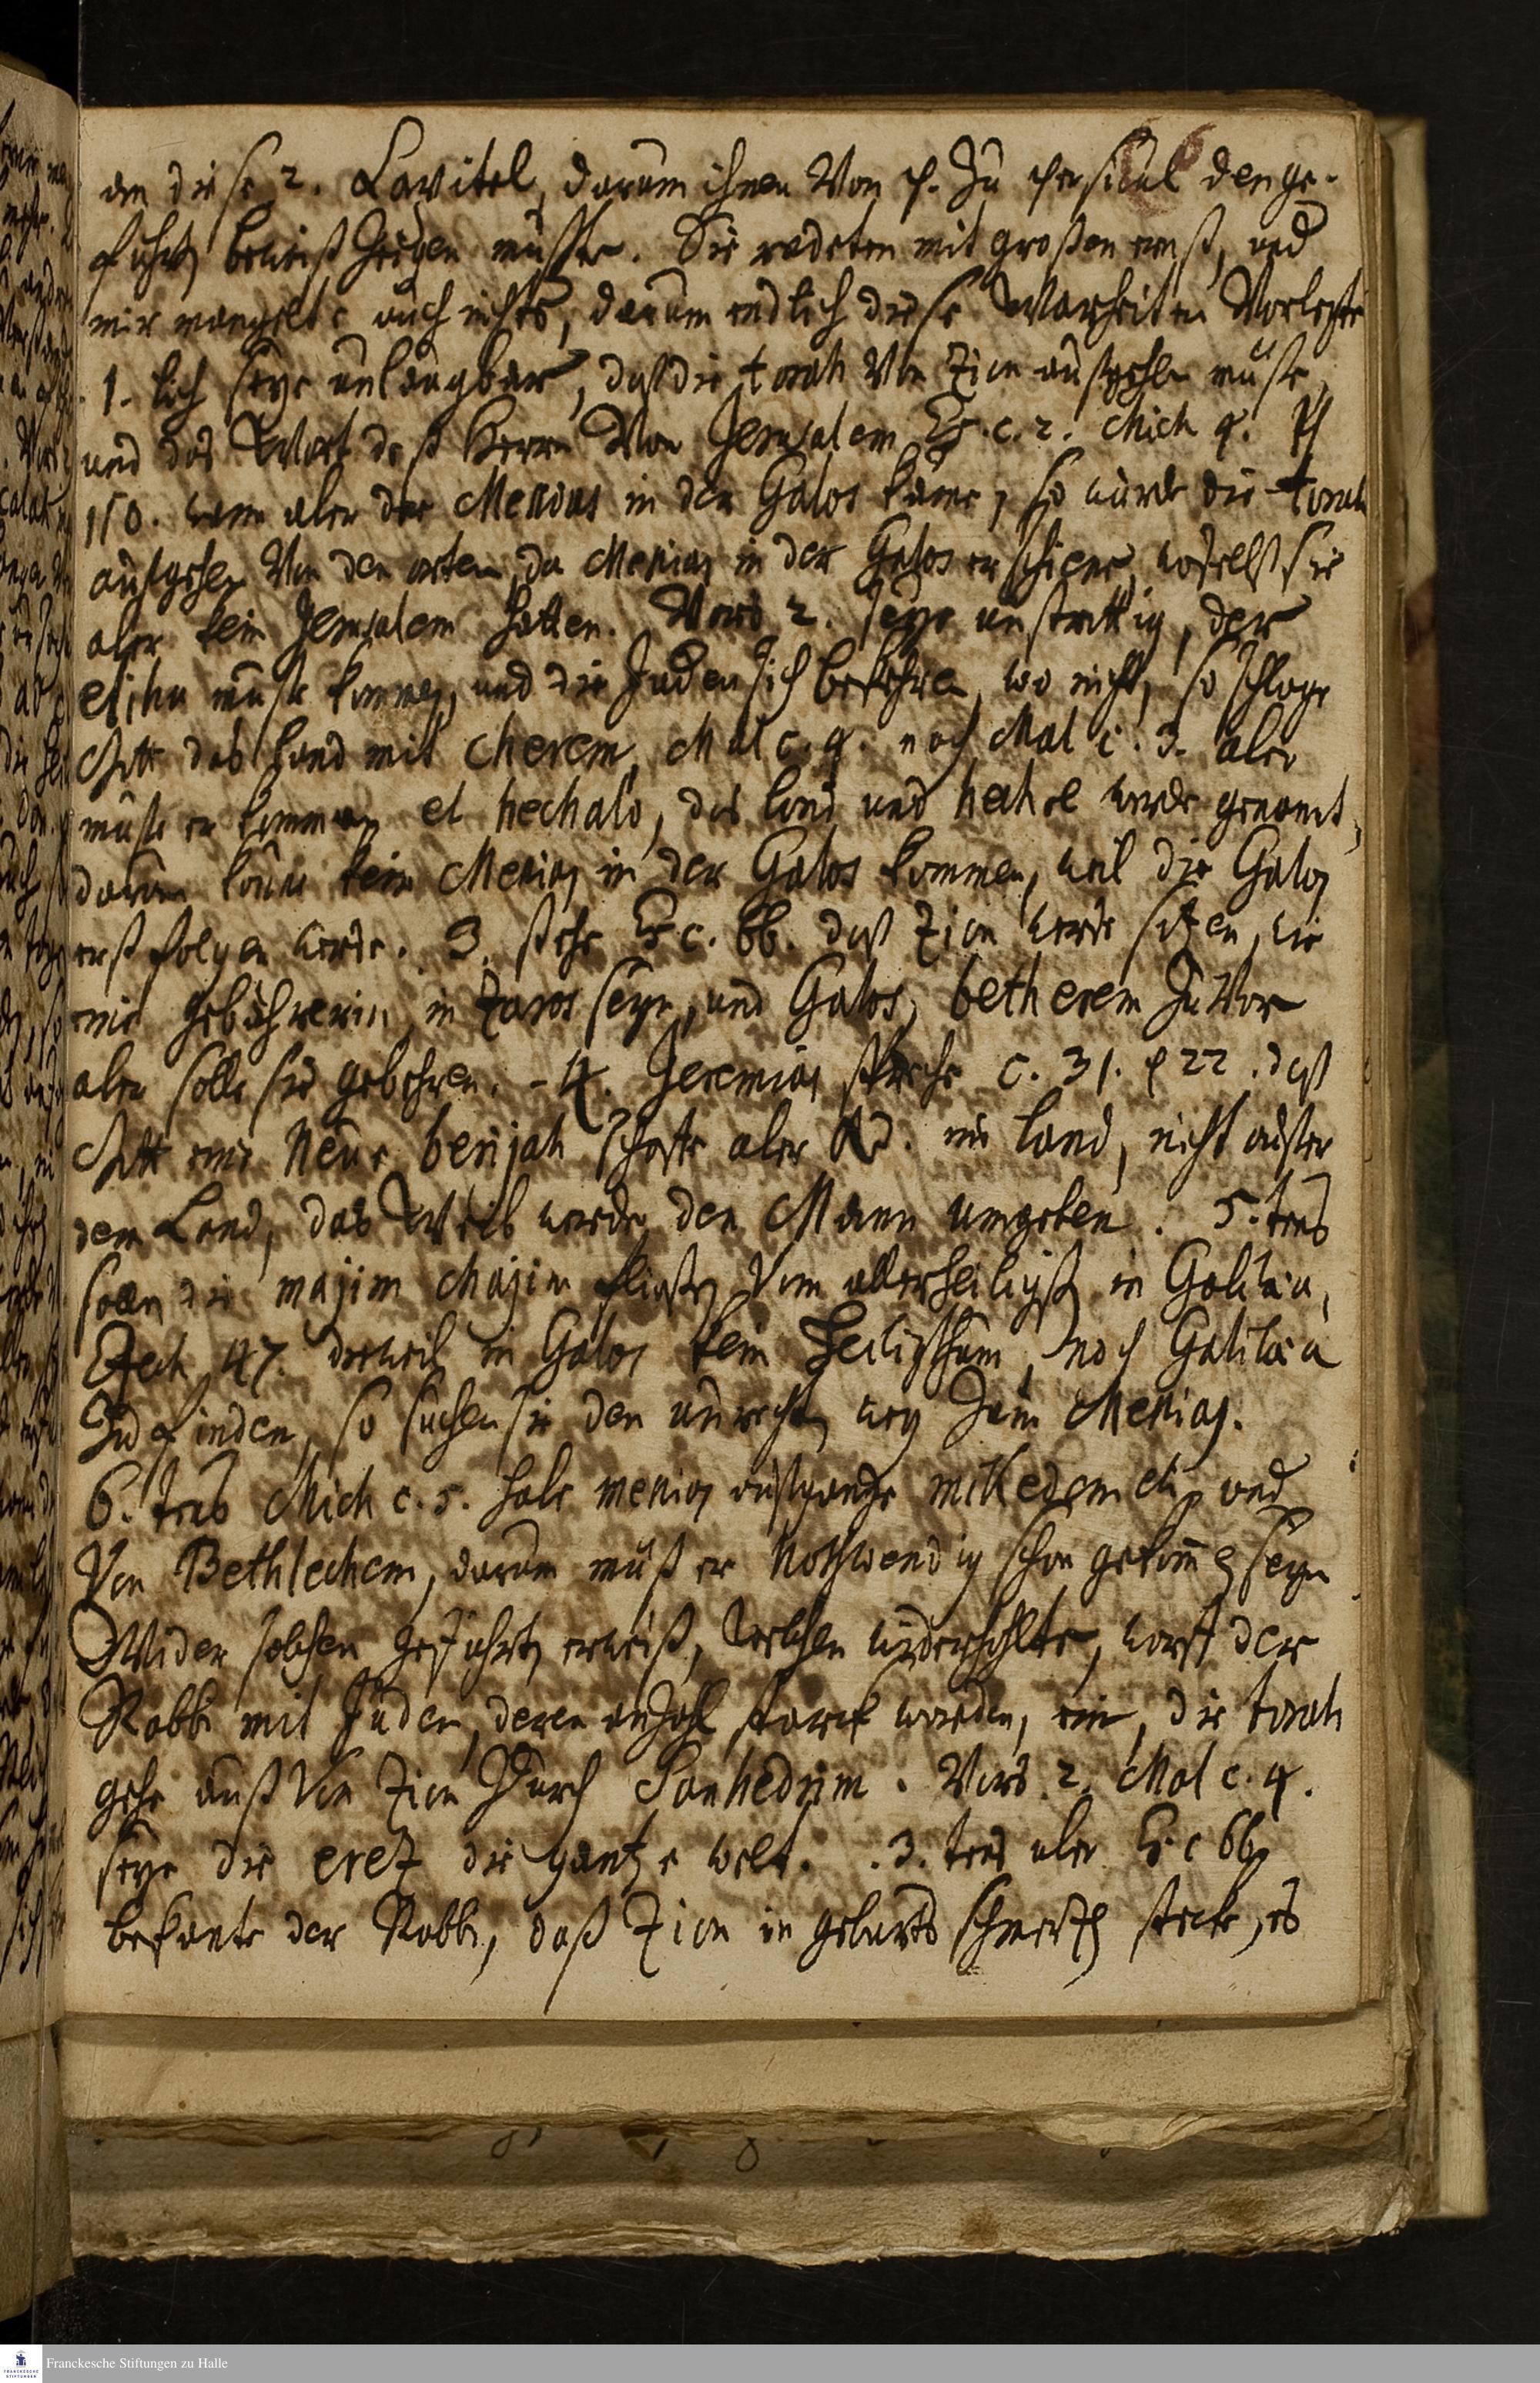 66
an diese 2. Capitel, darum ihnen von p. zu perscul den ge-
führten beweiß zeigen muste. Sie redeten mit großen ernst, und
mir mangelte auch nichts, darum endlich diese Warheiten Vorlegte
1. lich seye unlaugbar, daß die torah von Zion ausgehen muste,
und das Wort deß Herrn von Jerusalem Es. c. 2. Mich 4. Ps
110. wenn aber der Messias in der Galos käme, so würde die torah
ausgehen von den orten, da Messias in der Galos erschiene, woselbst sie
aber kein Jerusalem hätten. Vors 2. seye unstrittig, der
elihu muste kommen, und die Juden sich bekehren, wo nicht, so schlage
Gott das land mit cherem, Mal c. 4. nach Mal c. 3. aber
muste er kommen el hechalo, das land und hechel werde genannt,
darum könne kein Messias in der Galos kommen, weil die Galos
erst folgen werde. 3. stehe Es c. 66. daß Zion werde sitzen, wie
eine gebährerin, in Zaros seye, und Galos, betherem zuvor
aber solle sie gebehren. -4. Jeremias spreche c. 31. p 22. daß
Gott eine neue berijah schaffe aber NB. im land, nicht ausser
dem Land, das Weib werde den Mann umgeben. 5.tens
sollen die majim chajim fliessen vom allerheiligsten in Galilæa,
Ezech 47. dieweil in Galos kein Heiligthum, noch Galilæa
zu finden, so suchen sie den unrechten weg zum Messias.
6. tens Mich c. 5. habe messias ausgange mikkedem etc. und
Von Bethlechem, darum muß er nothwendig schon gekomen seyn
Wider solchen geführten erweiß, welchen widerhohlte, warf der
Rabbi mit Juden, deren anzahl starck worden, ein, die torah
gehe auß von Zion durch Sanhedrim. Vors. 2. Mal c. 4.
seye die erez die gantze welt. .3. tens aber Es. c 66
bekante der Rabbi, daß Zion in geburts schmertzen stecke, es
Franckesche Stiftungen zu Halle